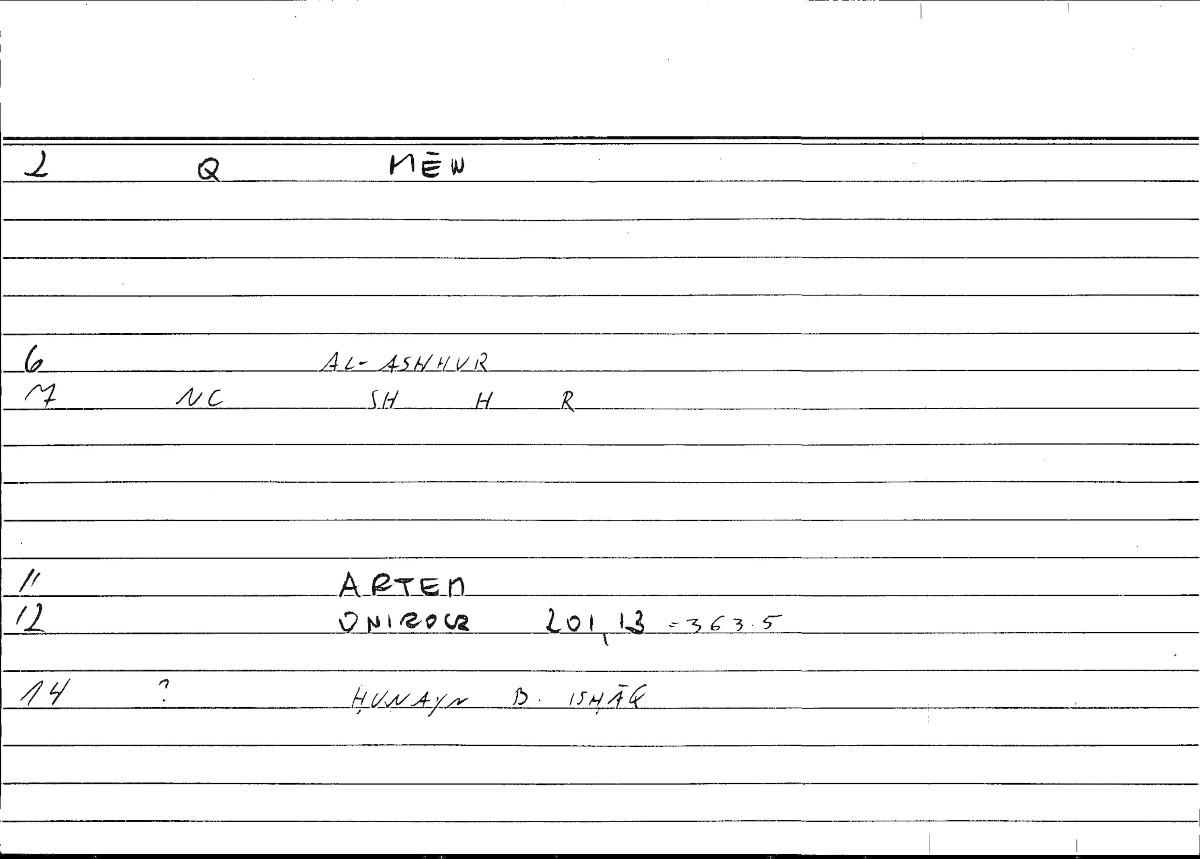 2 Q MĒN
6 AL-ASHHUR
7 NC SH H R
11 ARTEM
12 ONIROCR 201,13 =363.5
14 ? ḤUNAYN B. ISḤĀQ